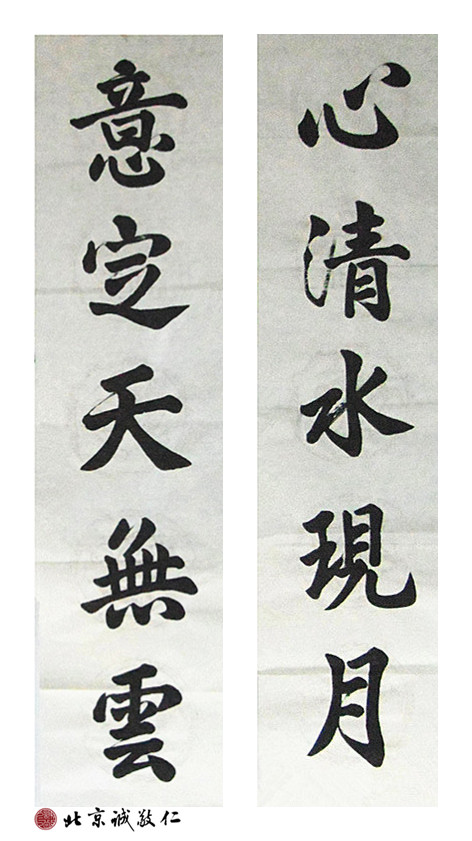 心清水現月
意定天無雲
北京诚敬仁